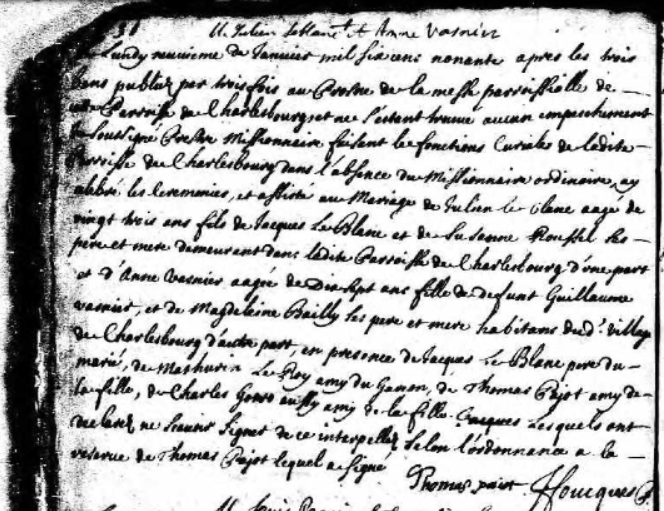 M. Julien Leblanc Et Anne Vasnier
Le Lundy neuvieme de Janvier mil six cens nonante apres les trois
bans publiez par trois fois au Prosne de la messe parroissialle de
Parroisse de Charlesbourg, et ne s'estant trouué aucun empeschement
Soussigné Prestre Missionnaire faisant les fonctions Curiales de ladite
Parroisse de Charlesbourg dans l'absence du Missionnaire ordinaire, ay
celebré les Ceremonies, et assisté au Mariage de Julien le blanc aagé de
vingt trois ans fils de Jacques Le Blanc et de Susanne Roussel ses
pere et mere demeurant dans ladite Parroisse de Charlesbourg d'une part
et d'Anne Vasnier aagée de dix sept ans fille de defunt Guillaume
vasnier, et de Magdeleine Bailly ses pere et mere habitans dud. village
de Charlesbourg d'autre part, en presence de Jacques Le Blanc pere du
marié, de Mathurin Le Roy amy du Garson, de Thomas Pajot amy de
la fille, de Charles aussy amy de la fille. Lesquels ont
declaré ne scauoir signer de ce interpellez selon l'ordonnance a la
reserue de Thomas Pajot lequel a signé
Thomas paiot Ffoucques P.
M. Louis